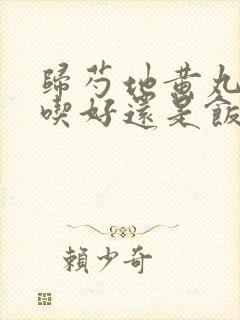 歸芍地黃丸
喫好還是飯
賴少奇